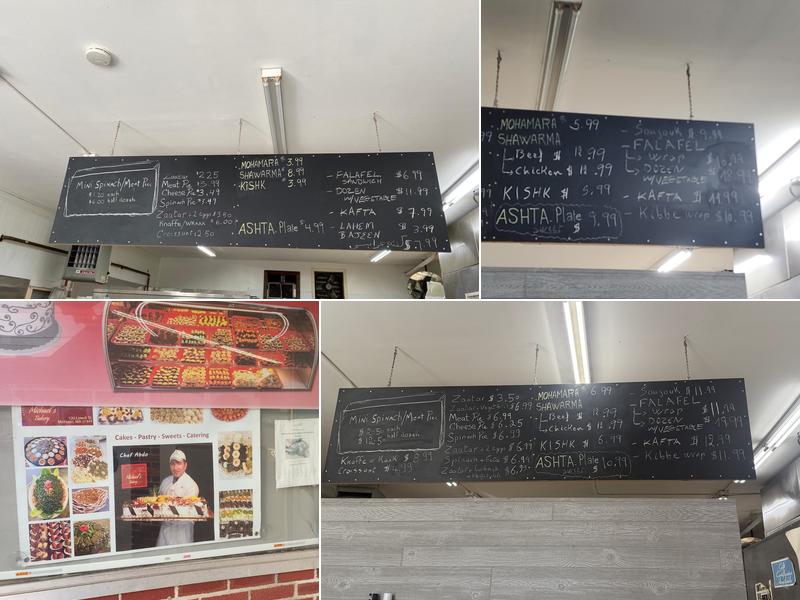 MINI SPINACH/MEAT PIES
$1.20 each
$6.00 half dozen
Zaatar $2.25
Meat Pie $3.99
Cheese Pie $3.49
Spinach Pie $3.49
Zaatar + 2 Eggs $3.50
Knaffe/Kaak $6.00
Croissant $2.50
MOHAMARA $3.99
SHAWARMA $8.99
KISHK $3.99
ASHTA Plate $4.99
- FALAFEL SANDWICH $6.99
- DOZEN W/VEGETABLE $11.99
- KAFTA $7.99
- LAHEM BAJEEN $3.99
$7.99
MOHAMARA $5.99
SHAWARMA
Beef $12.99
Chicken $12.99
KISHK $5.99
ASHTA Plate 9.99
- Soujouk $9.99
- FALAFEL
Wrap
DOZEN W/VEGETABLE
- KAFTA $11.99
- Kibbe wrap $10.99
Michael's Bakery
Cakes - Pastry - Sweets - Catering
Chef Abdo
Michael's
MINI SPINACH/MEAT PIES
each
half dozen
Knaffe + Kaak $8.99
Croissant
Zaatar $3.50
Meat Pie $6.99
Cheese Pie $6.25
Spinach Pie $6.99
MOHAMARA $6.99
SHAWARMA
Beef $12.99
Chicken $12.99
KISHK $6.99
ASHTA Plate 10.99
- Soujouk $11.99
- FALAFEL
Wrap $11.99
DOZEN W/VEGETABLE $19.99
- KAFTA $12.99
- Kibbe wrap $11.99